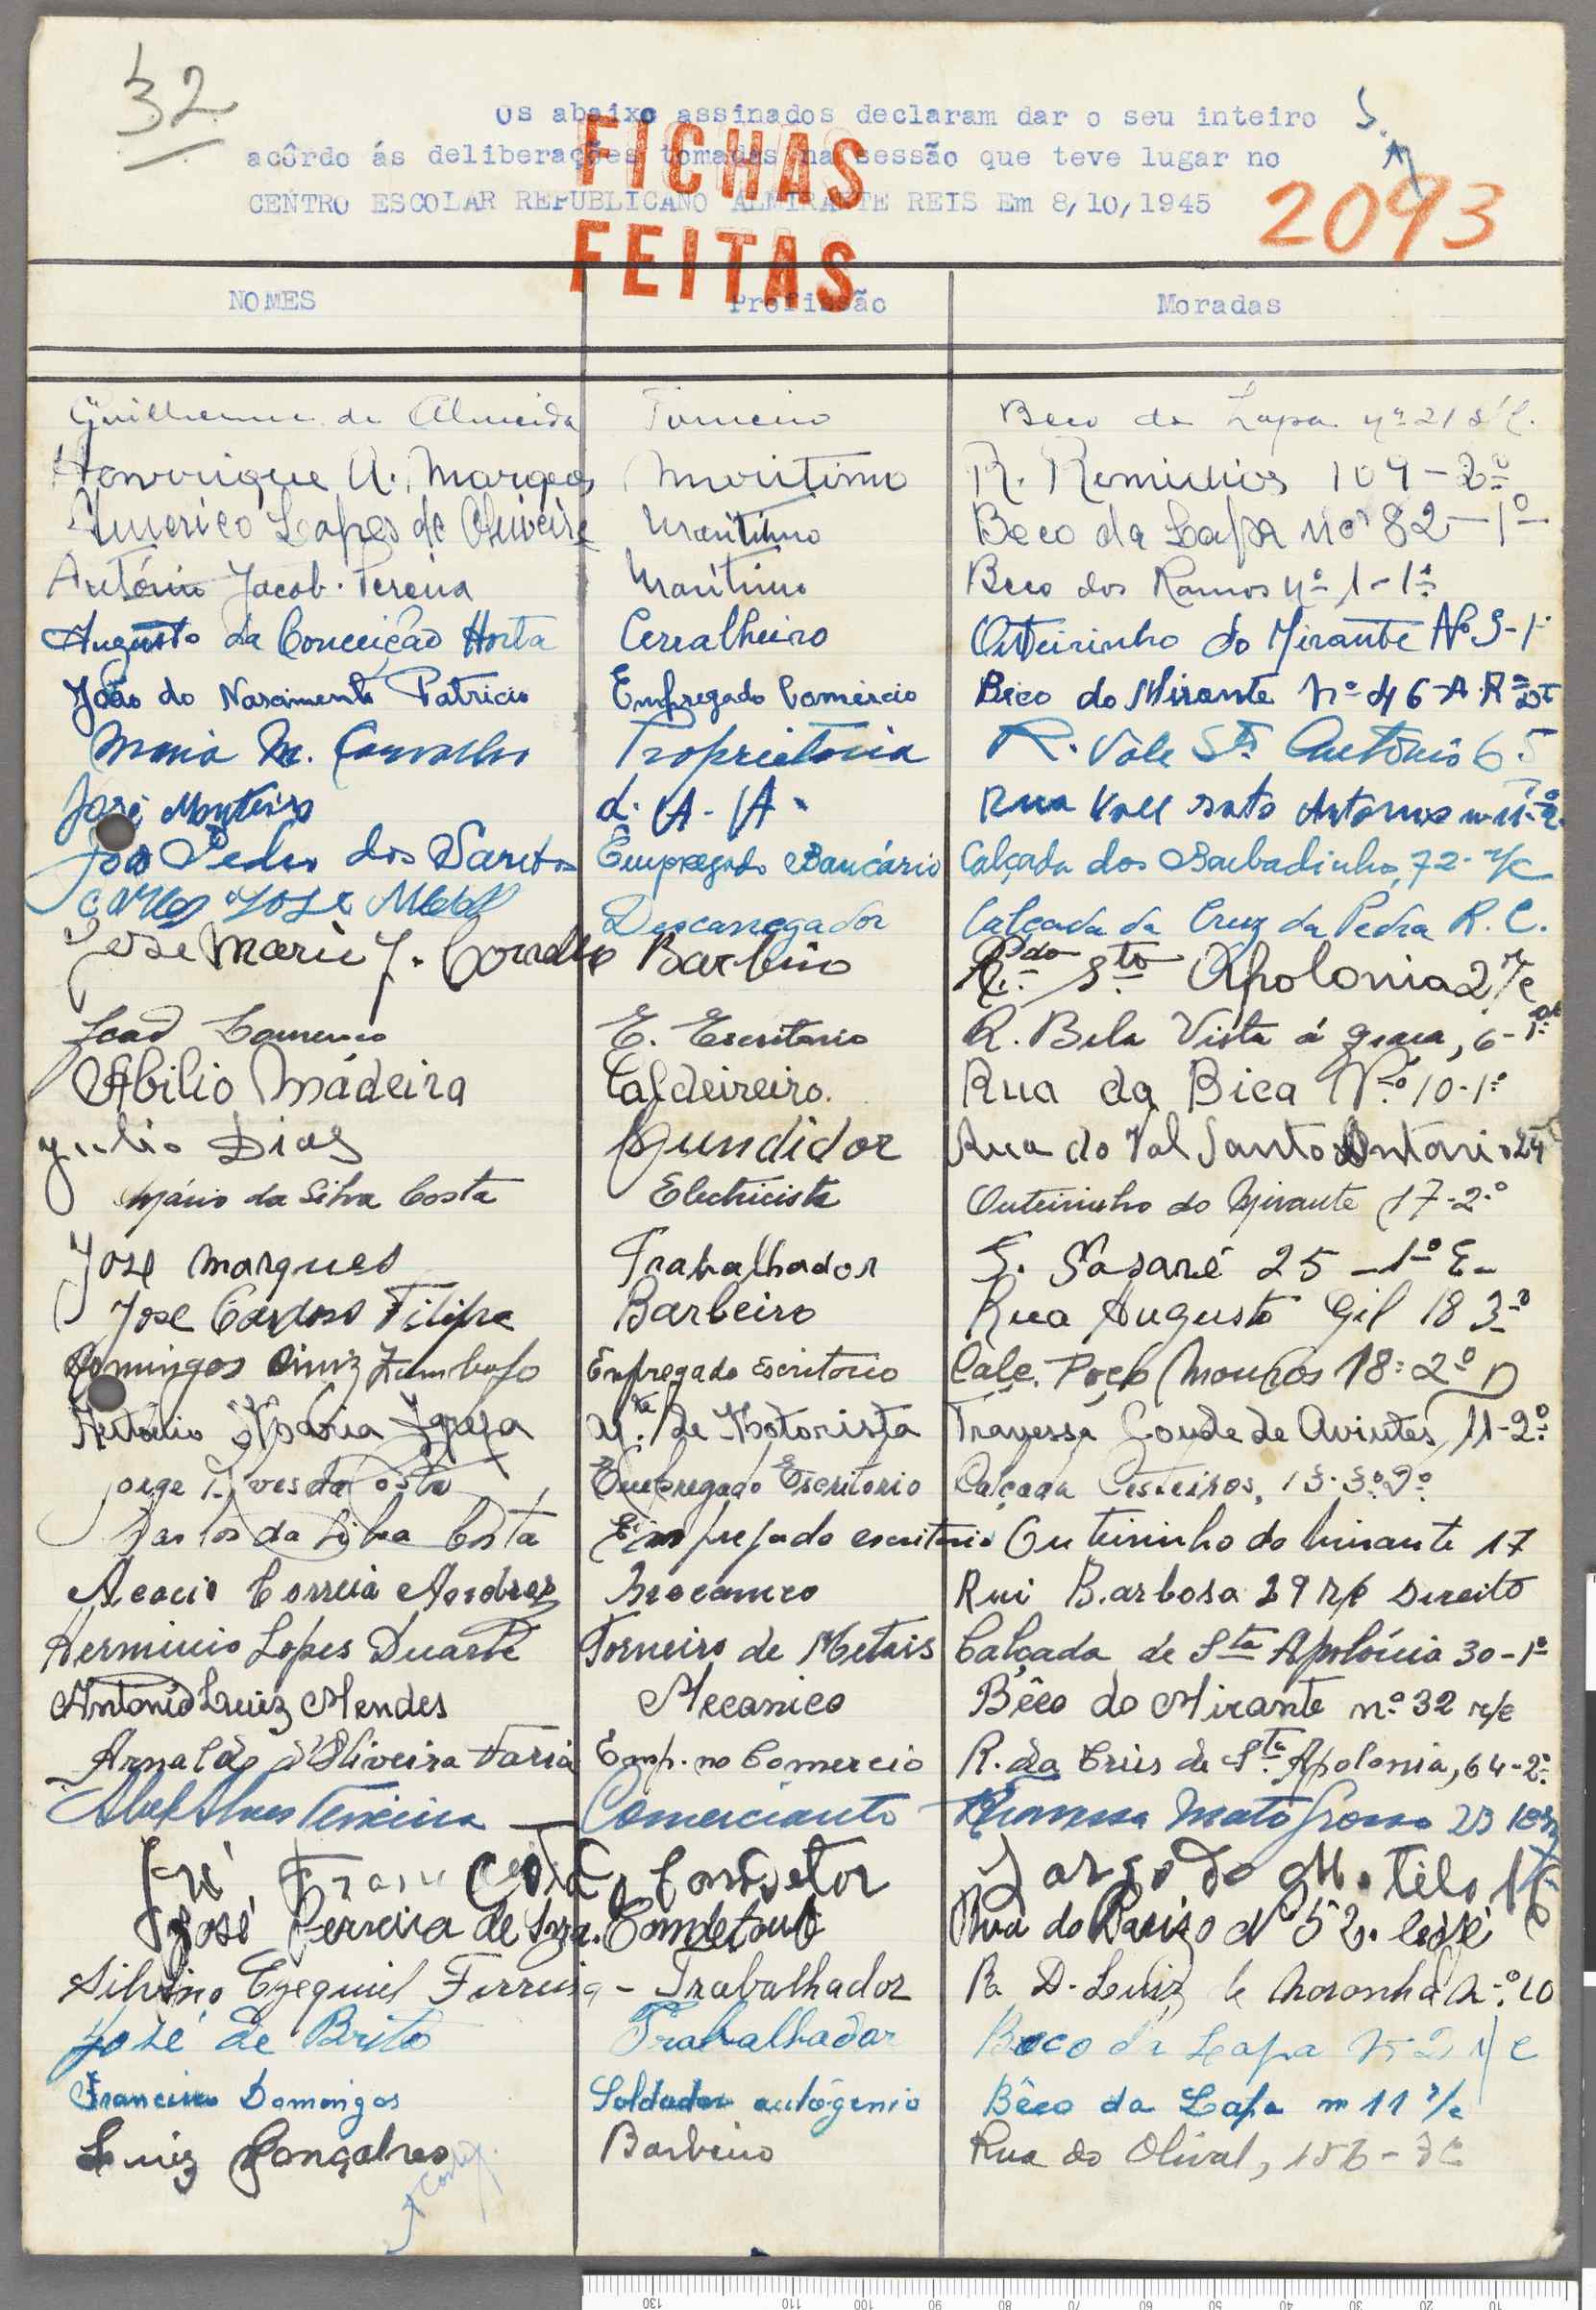 32
Os abaixo assinados declaram dar o seu inteiro
acôrdo ás deliberações tomadas na sessão que teve lugar no
CENTRO ESCOLAR REPUBLICANO ALMIRANTE REIS Em 8/10/1945
FICHAS
FEITAS
2093
NOMES Profissão Moradas
Guilherme de Almeida Torneiro Beco da Lapa nº 21
Henrrique A. Marques Maritimo R. Remidios 109-2º
Americo Lopes de Oliveira Maritimo Beco da Lapa nº 82-1º
António Jacob Pereira Maritimo Beco dos Ramos nº 1-1º
Augusto da Conceição Horta Cerralheiro Oiteirinho do Mirante Nº 9-1º
João do Nascimento Patricio Empregado Comércio Beco do Mirante Nº 46-A
Maria M. Carvalho Proprietaria R. Vale Stº António 65
José Monteiro Rua Vale
João Pedro dos Santos Empregado Bancário Calçada dos Barbadinhos, 72-r/c
Carlos José Descarregador Calçada da Cruz da Pedra R.C.
José Maria Barbeiro Stª Apolonia 2 r/c
João Lourenço E. Escritorio R. Bela Vista á graça, 6-1º
Abilio Mádeira Caldeireiro. Rua da Bica Nº 10-1º
Julio Dias Fundidor Rua do Val Santo Antonio 24
Mário da Silva Costa Electricista Outeirinho do Mirante 17-2.º
José Marques Trabalhador Nazaré 25-1º E.
José Cardoso Filipe Barbeiro Rua Augusto Gil 18 3º
Domingos Diniz Empregado Escritorio Calç. Poço Mouros 18-2º D
António Maria Igreja de Motorista Travessa Conde de Avintes, 11-2º
Jorge Alves da Costa Empregado Escritorio Calçada Cesteiros, 13-3º
Carlos da Silva Costa Empregado escritorio Outeirinho do Mirante 17
Acacio Correia Mecanico Rui Barbosa 29 r/c Direito
Herminio Lopes Duarte Torneiro de Metais Calçada de Sta Apolónia 30-1º
Antonio Luiz Mendes Mecanico Bêco do Mirante nº 32 r/c
Arnaldo d'Oliveira Faria Emp. no Comercio R. da Crus de Sta Apolonia, 64-2º
Abel Alves Teixeira Comerciante Travessa Mato Grosso 23
José Largo do
José Ferreira de Rua do
Silvino Ezequiel Ferreira - Trabalhador R. D. Luiz de Noronha n.º 10
José de Brito Trabalhador Beco da Lapa Nº 2 r/c
Francisco Domingos Soldador autógenio Bêco da Lapa nº 11 r/c
Luiz Gonçalves Barbeiro Rua do Olival,
130 110 100 90 80 70 60 50 40 30 20 10